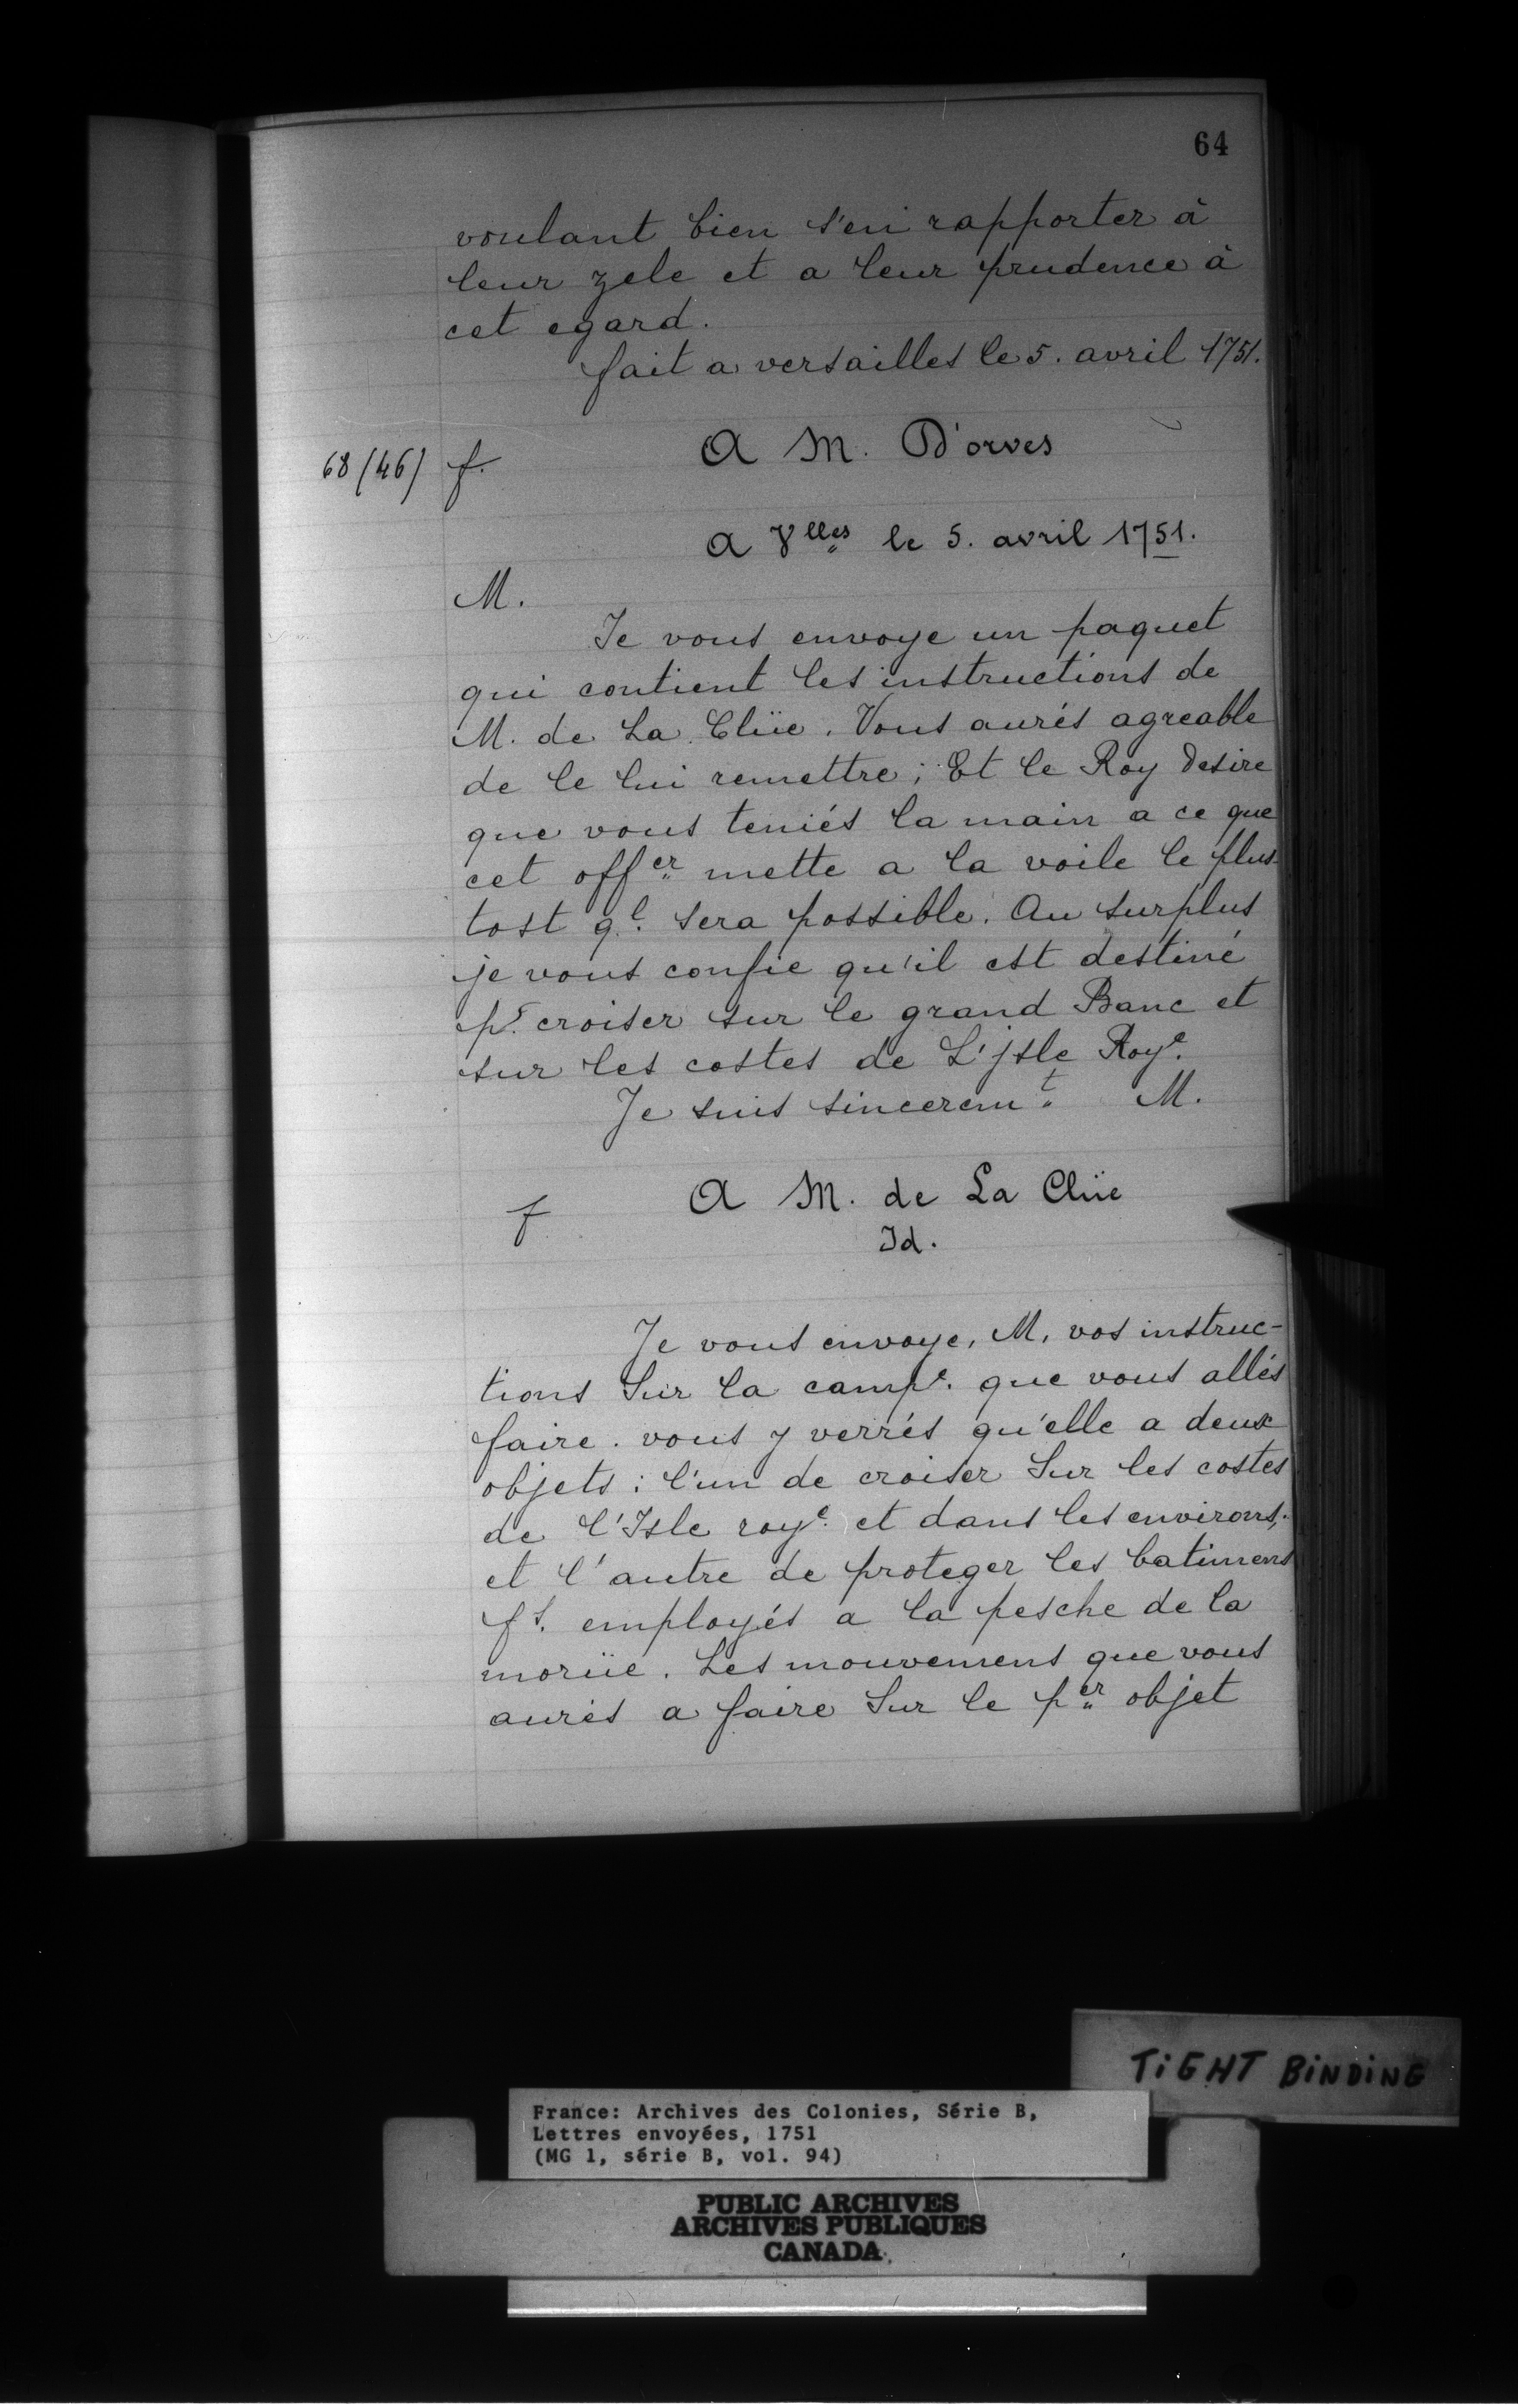 64
voulant bien s'en rapporter à
leur zele et a leur prudence à
cet egard.
fait a versailles le 5. avril 1751.
68 (46) f. A M. D'orves
A Vlles le 5. avril 1751.
M.
Je vous envoye un paquet
qui contient les instructions de
M. de La Clüe. Vous aurés agreable
de le lui remettre; Et le Roy desire
que vous teniés la main a ce que
cet offer mette a la voile le plus
tost ql. sera possible. Au surplus
je vous confie qu'il est destiné
pr. croiser sur le grand Banc et
sur les costes de L'jsle Roye.
Je suis sinceremt. M.
f A M. de La Clüe
Id.
Je vous envoye, M, vos instruc-
tions Sur la campe. que vous allés
faire. vous y verrés qu'elle a deux
objets: l'un de croiser Sur les costes
de l'Isle roye. et dans les environs;
et l'autre de proteger les batimens
fs. employés a la pesche de la
morüe. Les mouvemens que vous
aurés a faire Sur le per objet
TiGHT BiNDiNG
France: Archives des Colonies, Série B,
Lettres envoyées, 1751
(MG 1, série B, vol. 94)
PUBLIC ARCHIVES
ARCHIVES PUBLIQUES
CANADA